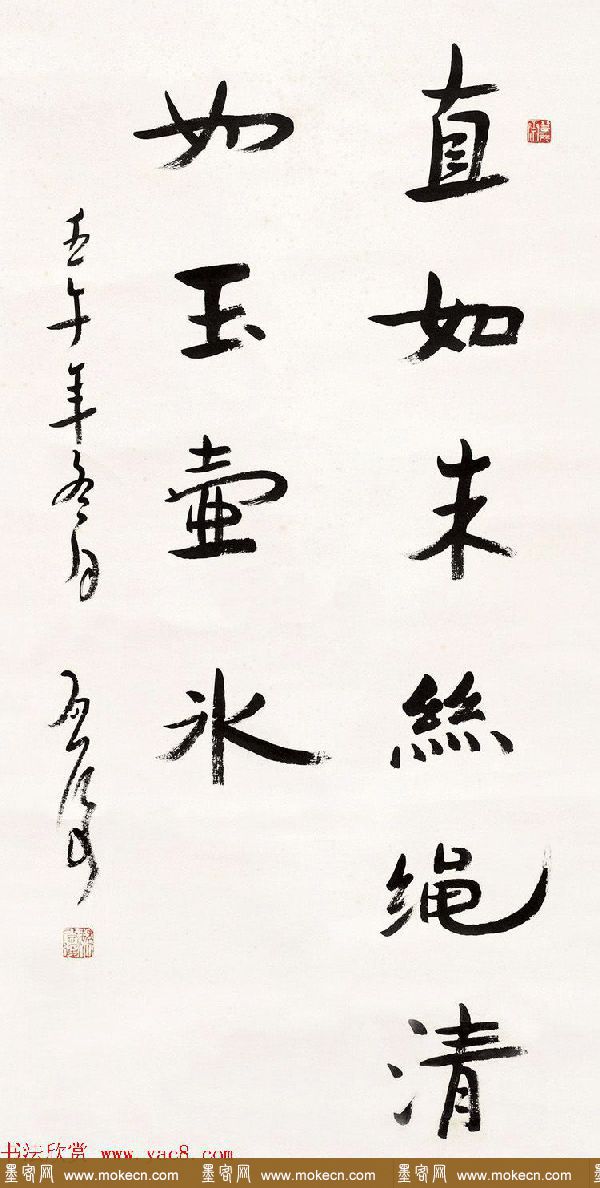 直如朱絲绳清
如玉壺冰
壬午年冬月
书法欣赏 www.yac8.com
墨客网 www.mokecn.com 墨客网 www.mokecn.com 墨客网 www.mokecn.com